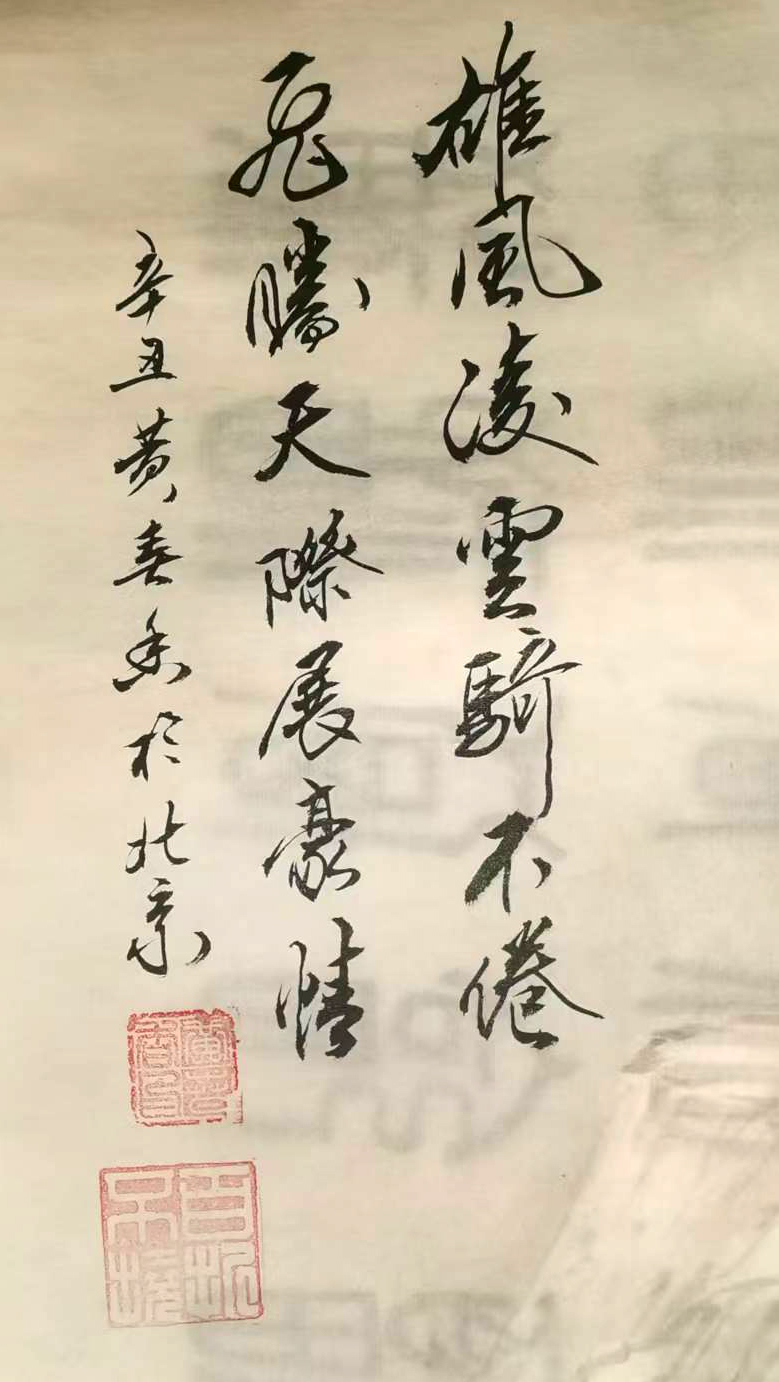 雄風凌雲騎不倦
飛騰天際展豪情
辛丑黄春香於北京
百折不撓